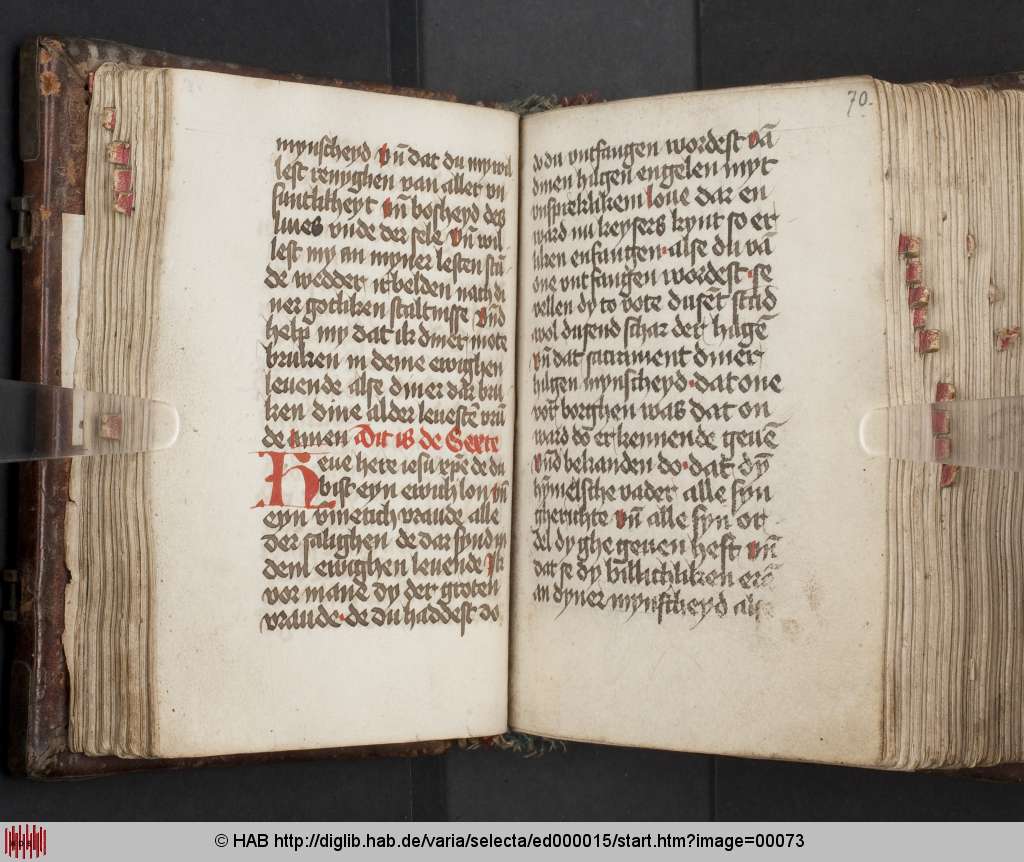 mynscheyd vn̄ dat du my wil
lest reynyghen van aller vn
sunchheyt vn̄ bosheyd des
liues vnde der sele vn̄ wil
lest my an myner lesten stū
de wedder belden nach di
ner gotliken staltnisse vn̄d
help my dat ik diner mote
bruken in deme ewighen
leuende alse diner dar bru
ken dine alder leuestē vrū
de amen Dit is de Sexte
Leue here iesu xp̄e de du
bist eyn ewich lon vn̄
eyn vraude alle
der salighen de dar synd in
dem ewighen leuende Ik
vor mane dy der groten
vraude de du haddest do
70.
do du vntfangen wordest vā
dinen hilgen engelen myt
vnspreklikem loue dar en
ward nu keysers kynt so er
liken enfangen alse du vā
one vntfangen wordest se
vellen dy to vote dusēt stūd
wol dusend schar der hilgē
vn̄ dat sacrament diner
hilgen mynscheyd dat one
vor borghen was dat on
ward do er kennende geuē
vn̄d bekanden do dat dȳ
hȳmelsche vader alle syn
gherichte vn̄ alle syn or
del dy ghegeuen heft vn̄
dat se dy billichliken erē
an dyner mynscheyd alse
© HAB http://diglib.hab.de/varia/selecta/ed000015/start.htm?image=00073